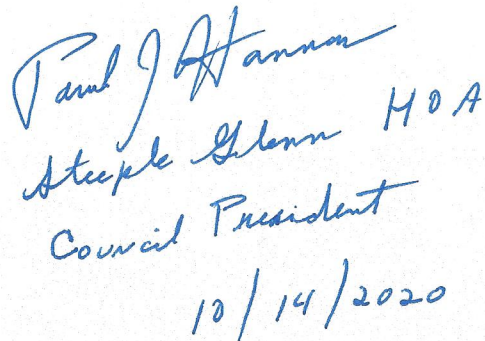 Paul J Hannon
Steeple Glenn HOA
Council President
10/14/2020